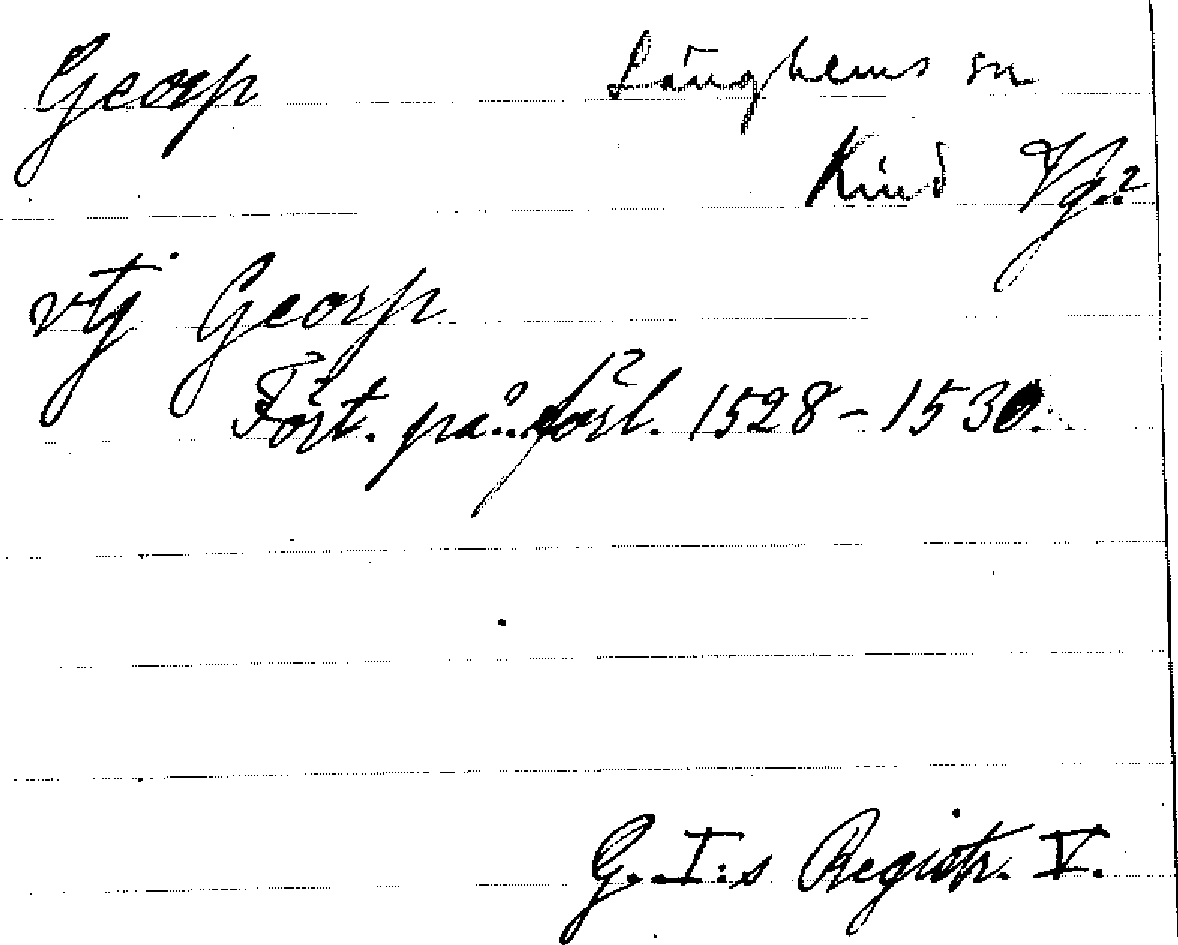 Georp Långhems sn
Kind Vg.
vtj Georp
Fört. på förl. 1528–1530.
G. I:s Registr. V.